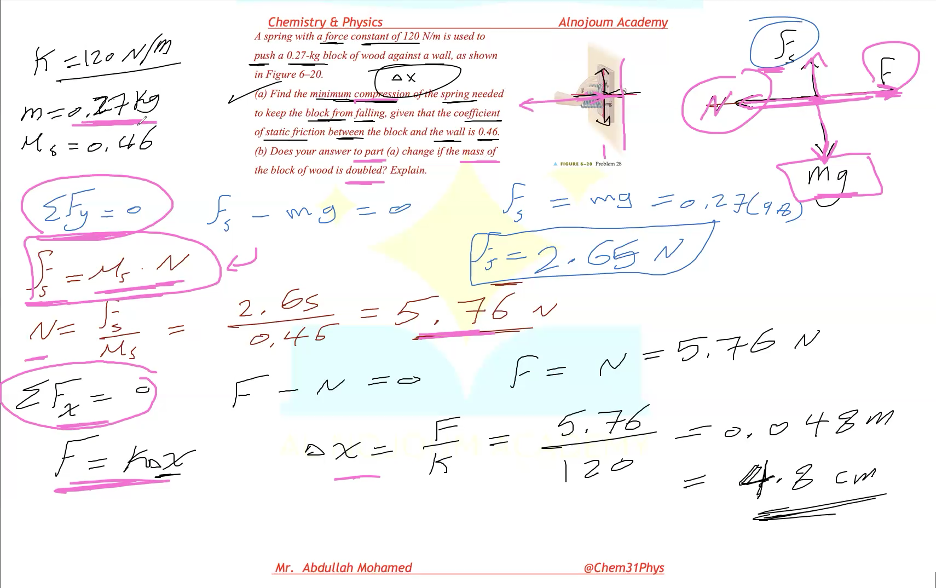 Chemistry & Physics
Alnojoum Academy
A spring with a force constant of 120 N/m is used to
push a 0.27-kg block of wood against a wall, as shown
in Figure 6–20.
Δx
(a) Find the minimum compression of the spring needed
to keep the block from falling, given that the coefficient
of static friction between the block and the wall is 0.46.
(b) Does your answer to part (a) change if the mass of
the block of wood is doubled? Explain.
▲ FIGURE 6–20 Problem 28
K = 120 N/m
m = 0.27 kg
Ms = 0.46
fs
F
N
mg
ΣFy = 0
fs - mg = 0
fs = mg = 0.27(9.8)
fs = 2.65 N
fs = Ms . N
N = fs/Ms = 2.65/0.46 = 5.76 N
ΣFx = 0
F - N = 0
F = N = 5.76 N
F = KΔx
Δx = F/K = 5.76/120 = 0.048 m
= 4.8 cm
Mr. Abdullah Mohamed
@Chem31Phys